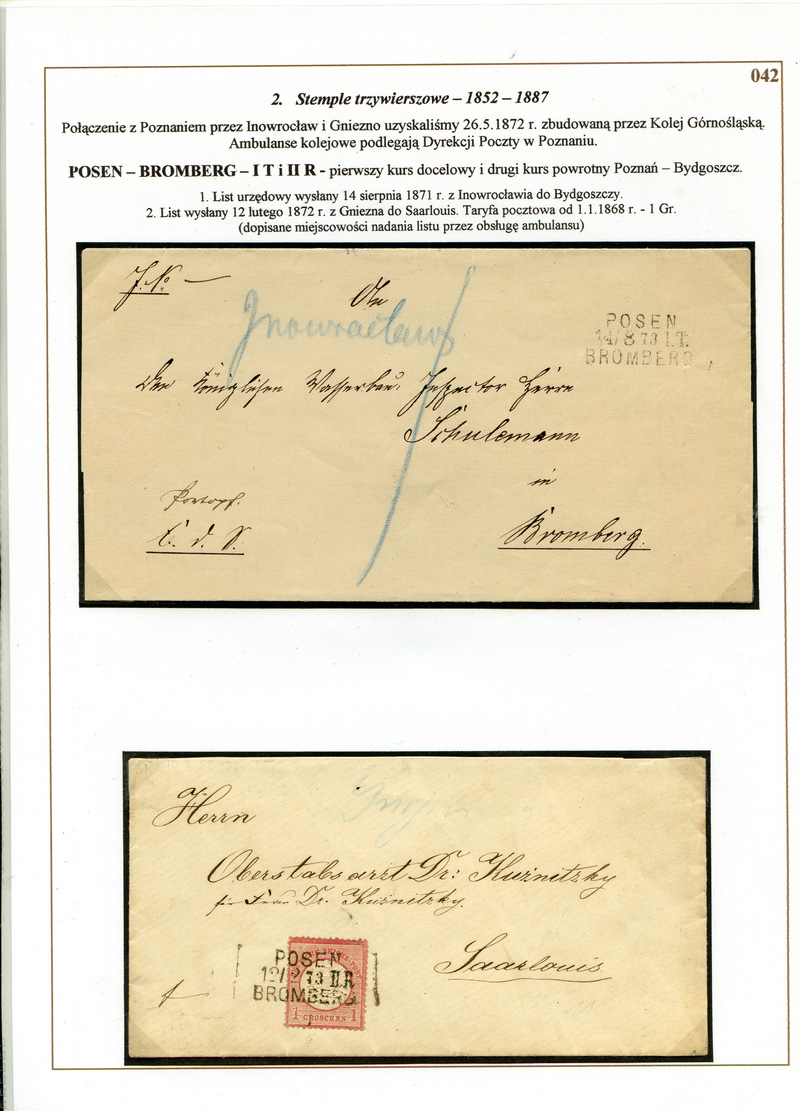 042
2. Stemple trzywierszowe – 1852 – 1887
Połączenie z Poznaniem przez Inowrocław i Gniezno uzyskaliśmy 26.5.1872 r. zbudowaną przez Kolej Górnośląską.
Ambulanse kolejowe podlegają Dyrekcji Poczty w Poznaniu.
POSEN – BROMBERG – I T i II R - pierwszy kurs docelowy i drugi kurs powrotny Poznań – Bydgoszcz.
1. List urzędowy wysłany 14 sierpnia 1871 r. z Inowrocławia do Bydgoszczy.
2. List wysłany 12 lutego 1872 r. z Gniezna do Saarlouis. Taryfa pocztowa od 1.1.1868 r. - 1 Gr.
(dopisane miejscowości nadania listu przez obsługę ambulansu)
J. No
An
Inowraclaw
POSEN
14/8 73 I.T.
BROMBERG
Den Königlichen Wasserbau: Inspector Herrn
Schulemann
in
Portopf.
Bromberg.
Herrn
Gnesen
Oberstabsarzt Dr: Kuznitzky
für Frau Dr. Kuznitzky.
Saarlouis
POSEN
12/2 73 II.R
BROMBERG
1 GROSCHEN 1